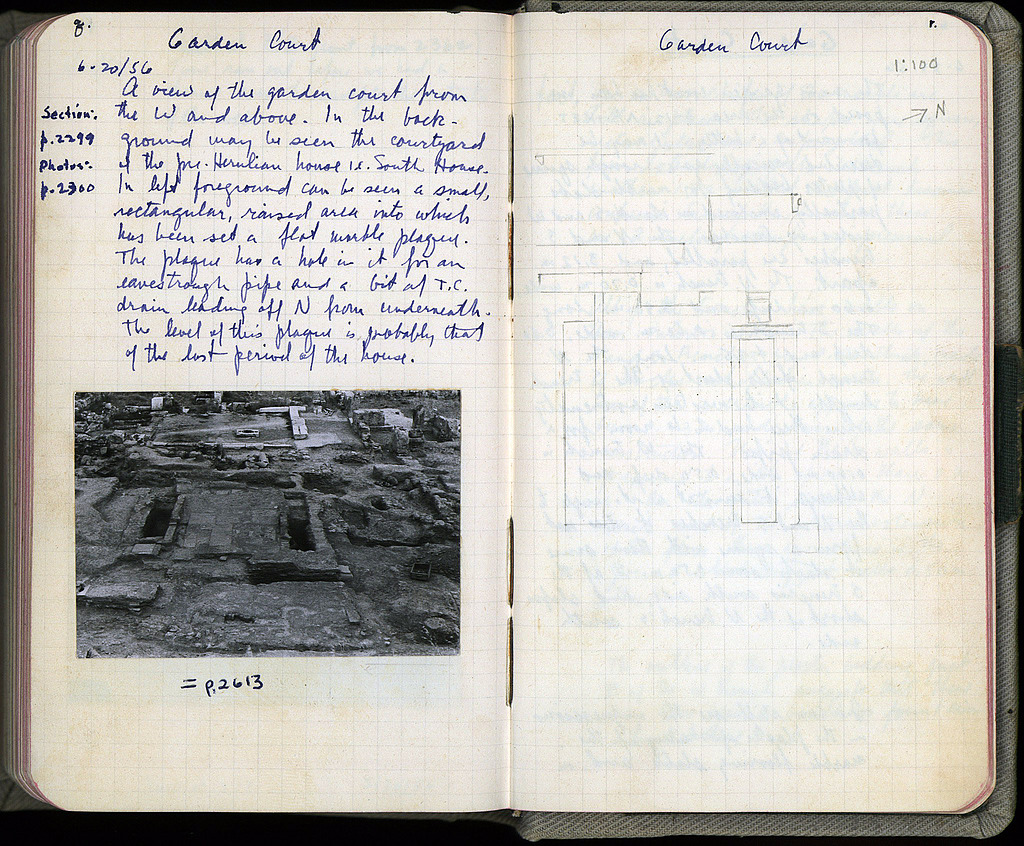 q.
Garden Court
6-20/56
A view of the garden court from
the W and above. In the back-
ground may be seen the courtyard
of the pre-Herulian house i.e. South House.
In left foreground can be seen a small,
rectangular, raised area into which
has been set a flat marble plaque.
The plaque has a hole in it for an
eavestrough pipe and a bit of T.C.
drain leading off N from underneath.
The level of this plaque is probably that
of the last period of the house.
Section:
p.2299
Photos:
p.2300
= p.2613
r.
Garden Court
1:100
→ N